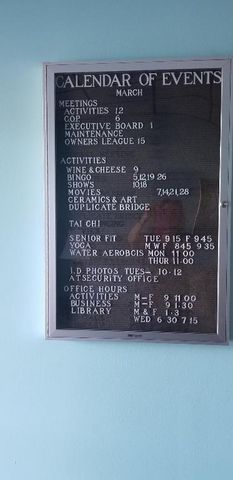 CALENDAR OF EVENTS
MARCH
MEETINGS
ACTIVITIES 12
C.O.P. 6
EXECUTIVE BOARD 1
MAINTENANCE
OWNERS LEAGUE 15
ACTIVITIES
WINE & CHEESE 9
BINGO 5,12,19 26
SHOWS 10,18
MOVIES 7,14,21,28
CERAMICS & ART
DUPLICATE BRIDGE
TAI CHI
SENIOR FIT TUE 9 15 F 9 45
YOGA M W F 8 45 9 35
WATER AEROBCIS MON 11 00
THUR 11 00
I.D PHOTOS TUES- 10-12
AT SECURITY OFFICE
OFFICE HOURS
ACTIVITIES M-F 9 11 00
BUSINESS M-F 9 1-30
LIBRARY M & F 1-3
WED 6 30 7 15